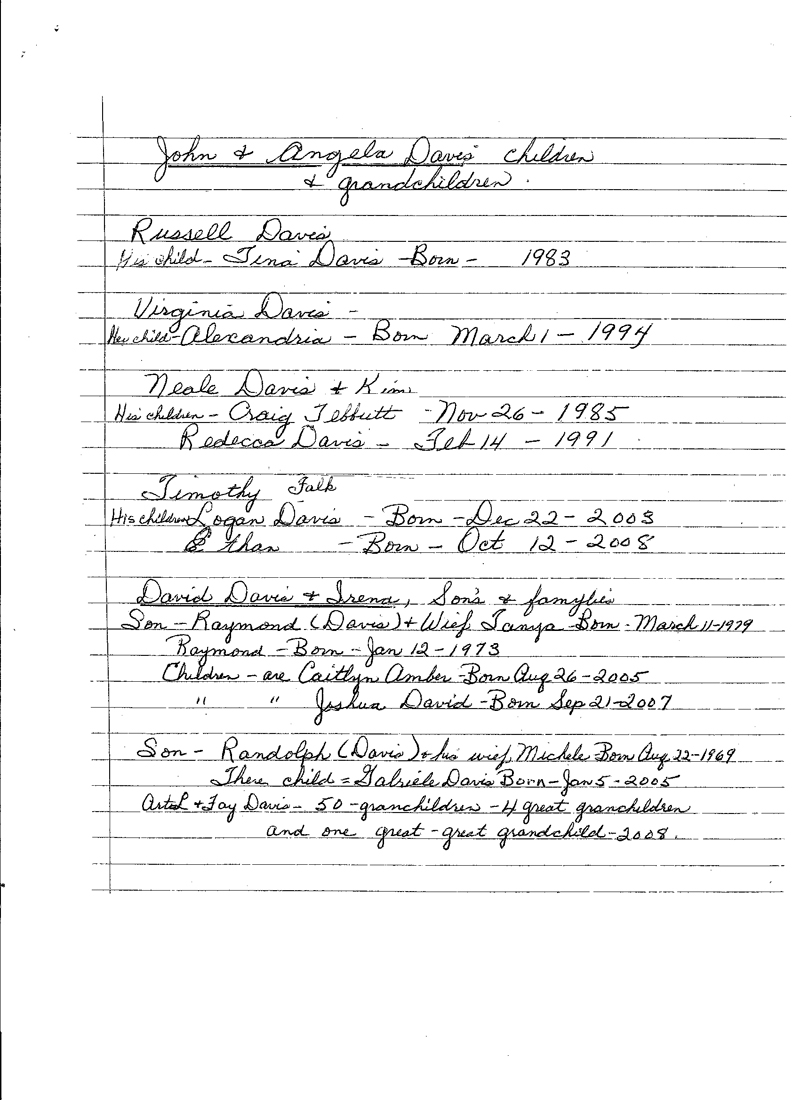 John & Angela Davis' children
& grandchildren.
Russell Davis
His child - Tina Davis - Born - 1983
Virginia Davis -
Her child - Alexandria - Born March 1 - 1994
Neale Davis & Kim
His children - Craig Tebbutt - Nov 26 - 1985
Redecca Davis - Feb 14 - 1991
Timothy Falk
His children Logan Davis - Born - Dec 22 - 2003
Ethan - Born - Oct 12 - 2008
David Davis & Irena, Son's & famylies
Son - Raymond (Davis) & Wief Tanya - Born - March 11 - 1979
Raymond - Born - Jan 12 - 1973
Children - are Caitlyn Amber - Born Aug 26 - 2005
" " Joshua David - Born Sep 21 - 2007
Son - Randolph (Davis) & his wief Michele Born Aug 22 - 1969
There child = Gabriele Davis Born - Jan 5 - 2005
& Fay Davis - 50 - granchildren - 4 great granchildren
and one great - great grandchild - 2008.